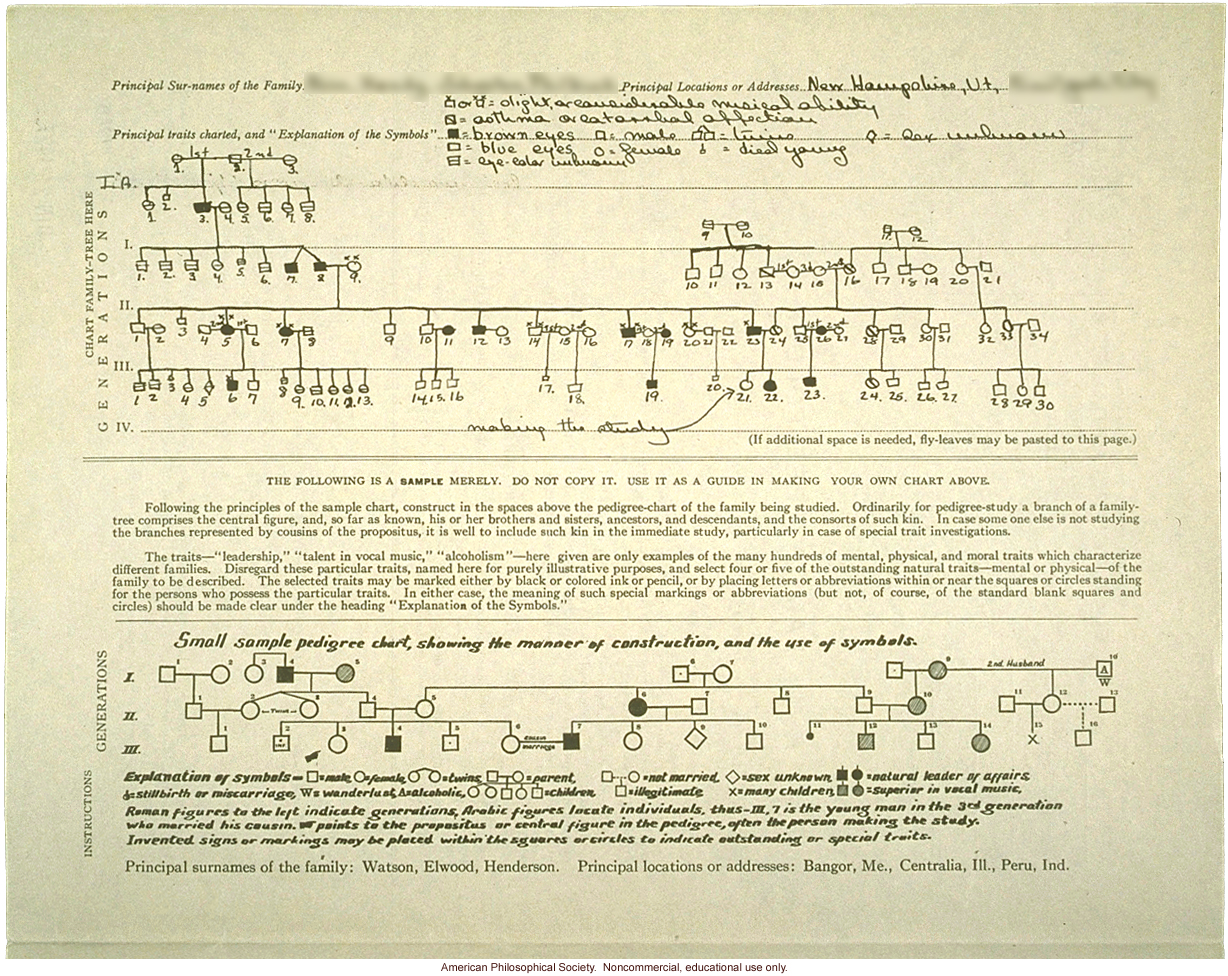 Principal Sur-names of the Family
Principal Locations or Addresses.. New Hampshire, Vt,
= slight, or considerable musical ability
= asthma or catarrhal affection
Principal traits charted, and "Explanation of the Symbols"..
= brown eyes = male = twins = sex unknown
= blue eyes = female = died young
= eye-color unknown
1. 1st 2. 2nd 3.
I A.
1. 2. 3. 4. 5. 6. 7. 8.
9 10 11. 12
I.
1. 2. 3. 4. 5. 6. 7. 8 9. 10 11 12 13 1st 14 3d 15 2nd 16 17 18 19 20 21
II
1 2 3 4 2nd 5 1st 6 7 8 9 10 11 12 13 14 1st 15 2nd 16 17 18 19 20 21 22 23 24 25 1st 26 27 28 29 30 31 32 33 34
III.
1 2 3 4 5 6 7 8 9. 10. 11. 12. 13. 14. 15. 16 17. 18. 19. 20. 21. 22. 23. 24. 25. 26. 27. 28 29 30
IV.
making the study
(If additional space is needed, fly-leaves may be pasted to this page.)
CHART FAMILY-TREE HERE
GENERATIONS
THE FOLLOWING IS A SAMPLE MERELY. DO NOT COPY IT. USE IT AS A GUIDE IN MAKING YOUR OWN CHART ABOVE.
Following the principles of the sample chart, construct in the spaces above the pedigree-chart of the family being studied. Ordinarily for pedigree-study a branch of a family-
tree comprises the central figure, and, so far as known, his or her brothers and sisters, ancestors, and descendants, and the consorts of such kin. In case some one else is not studying
the branches represented by cousins of the propositus, it is well to include such kin in the immediate study, particularly in case of special trait investigations.
The traits—"leadership," "talent in vocal music," "alcoholism"—here given are only examples of the many hundreds of mental, physical, and moral traits which characterize
different families. Disregard these particular traits, named here for purely illustrative purposes, and select four or five of the outstanding natural traits—mental or physical—of the
family to be described. The selected traits may be marked either by black or colored ink or pencil, or by placing letters or abbreviations within or near the squares or circles standing
for the persons who possess the particular traits. In either case, the meaning of such special markings or abbreviations (but not, of course, of the standard blank squares and
circles) should be made clear under the heading "Explanation of the Symbols."
Small sample pedigree chart, showing the manner of construction, and the use of symbols.
GENERATIONS
I. 1 2 3 4 5 6 7 8 9 2nd Husband 10 A W
II. 1 2 Twins 3 4 5 6 7 8 9 10 11 12 13
III. 1 2 3 4 5 6 cousin marriage 7 8 9 10 11 12 13 14 15 X 16
INSTRUCTIONS
Explanation of symbols— =male, =female, =twins, =parent, =not married, =sex unknown, =natural leader of affairs,
=stillbirth or miscarriage, W=wanderlust, A=alcoholic, =children, =illegitimate, X=many children, =superior in vocal music,
Roman figures to the left indicate generations, Arabic figures locate individuals, thus-III, 7 is the young man in the 3rd generation
who married his cousin. points to the propositus or central figure in the pedigree, often the person making the study.
Invented signs or markings may be placed within the squares or circles to indicate outstanding or special traits.
Principal surnames of the family: Watson, Elwood, Henderson. Principal locations or addresses: Bangor, Me., Centralia, Ill., Peru, Ind.
American Philosophical Society. Noncommercial, educational use only.